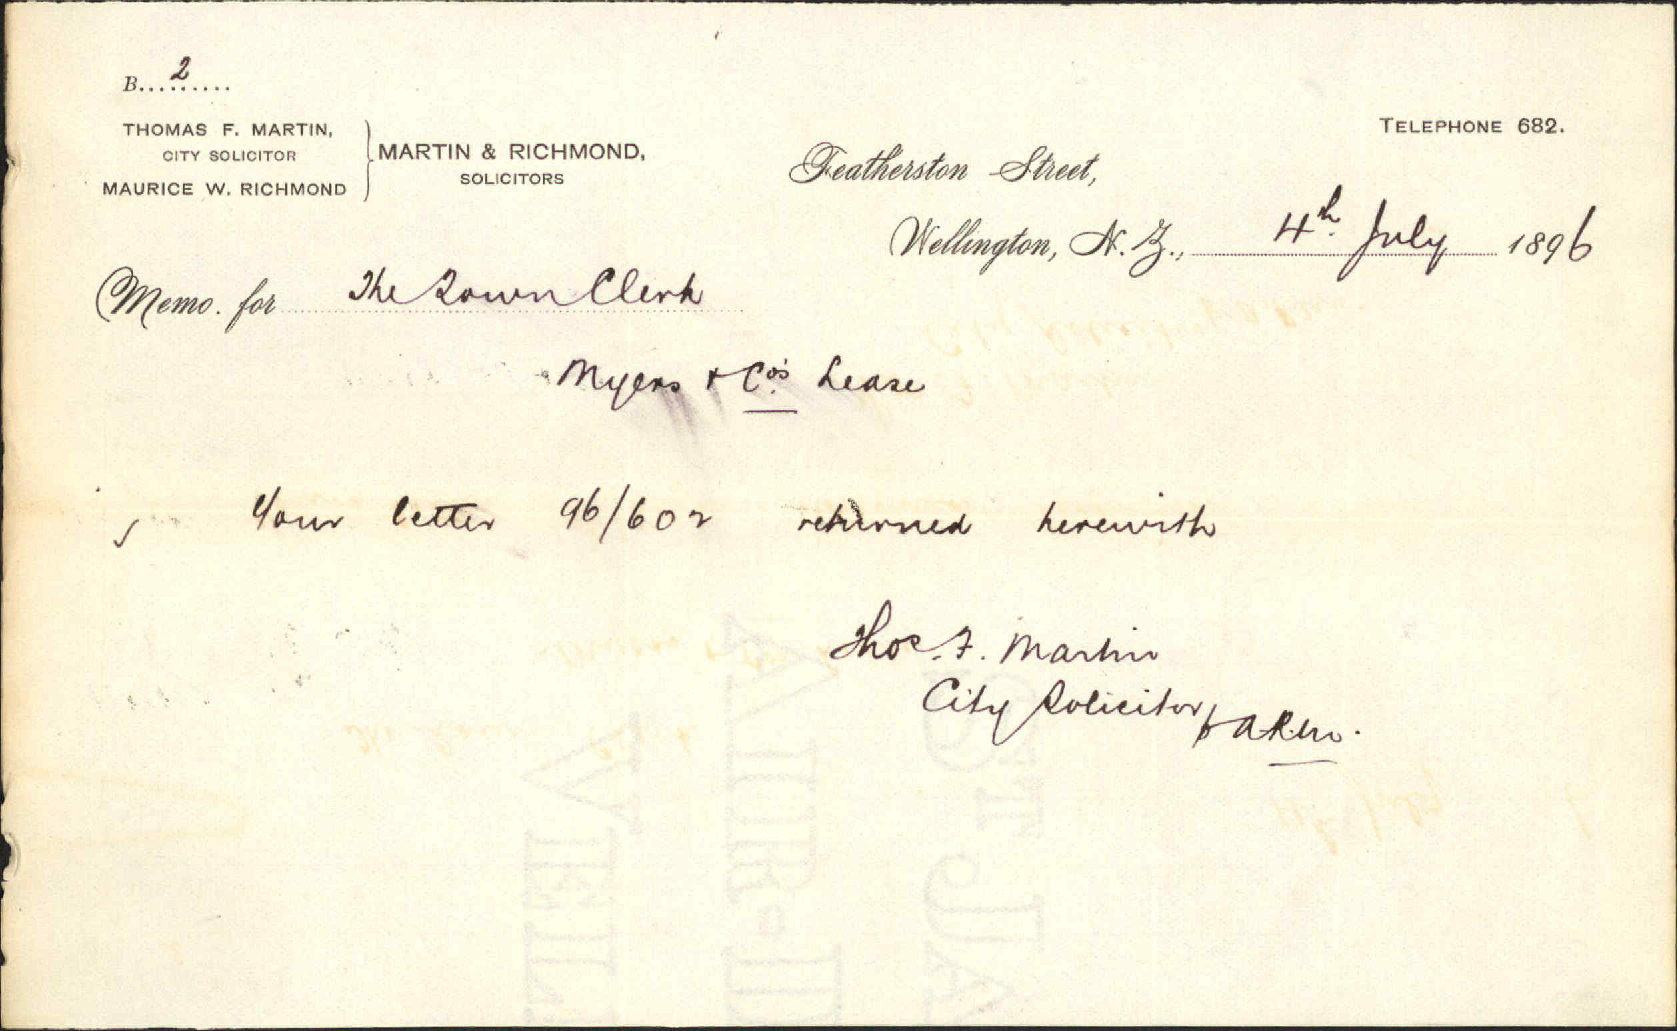 B...2......
THOMAS F. MARTIN,
CITY SOLICITOR
MAURICE W. RICHMOND
MARTIN & RICHMOND,
SOLICITORS
TELEPHONE 682.
Featherston Street,
Wellington, N.Z., 4th. July 1896
Memo. for The Town Clerk
Myers & Co's Lease
Your letter 96/602 returned herewith
Thos. F. Martin
City Solicitor